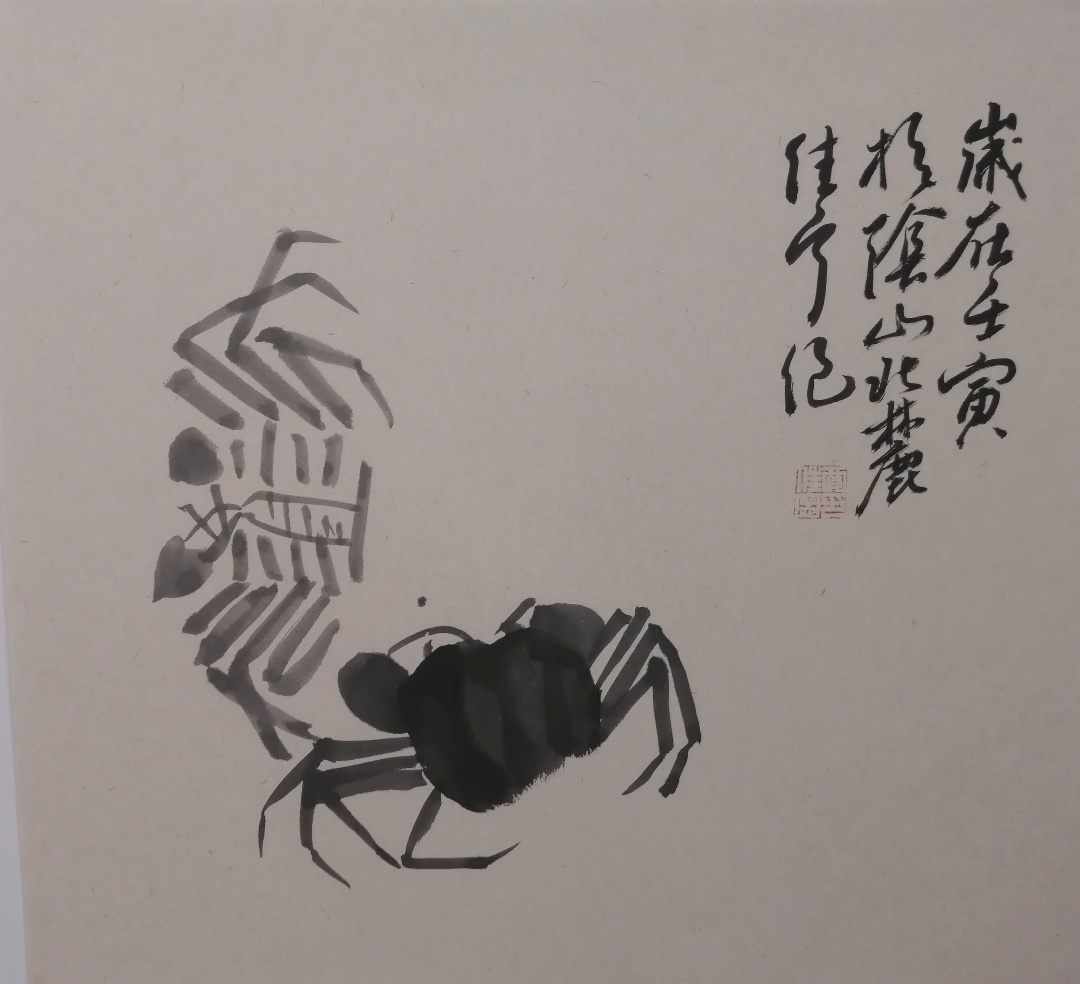 歲在壬寅
於陰山北麓
佳寧